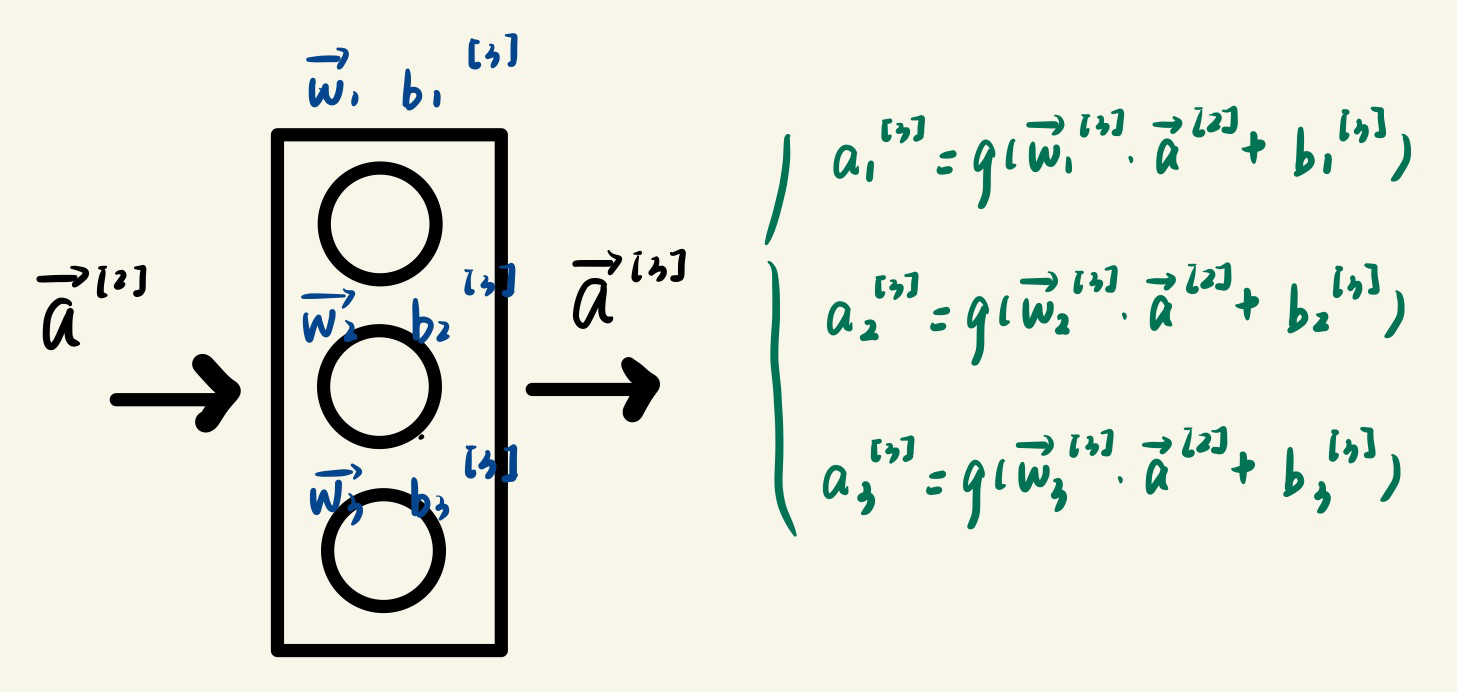 w⃗₁ b₁^[3]
a⃗^[2]
w⃗₂ b₂^[3]
w⃗₃ b₃^[3]
a⃗^[3]
a₁^[3] = g(w⃗₁^[3] · a⃗^[2] + b₁^[3])
a₂^[3] = g(w⃗₂^[3] · a⃗^[2] + b₂^[3])
a₃^[3] = g(w⃗₃^[3] · a⃗^[2] + b₃^[3])